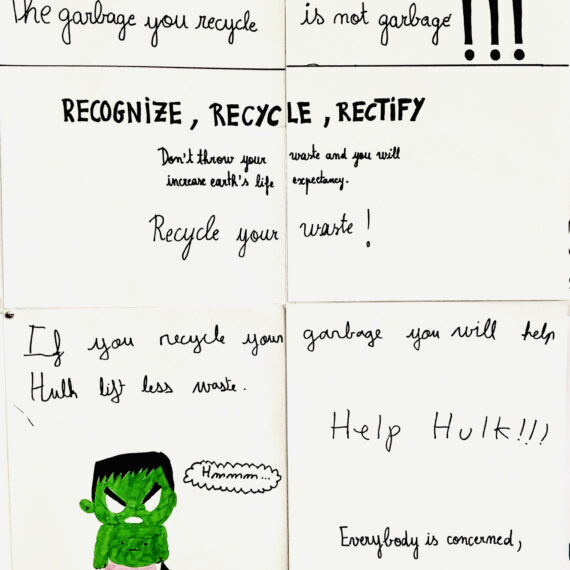 The garbage you recycle is not garbage !!!
RECOGNIZE, RECYCLE, RECTIFY
Don't throw your waste and you will
increase earth's life expectancy.
Recycle your waste !
If you recycle your garbage you will help
Hulk lift less waste.
Help Hulk!!!
Hmmm...
Everybody is concerned,